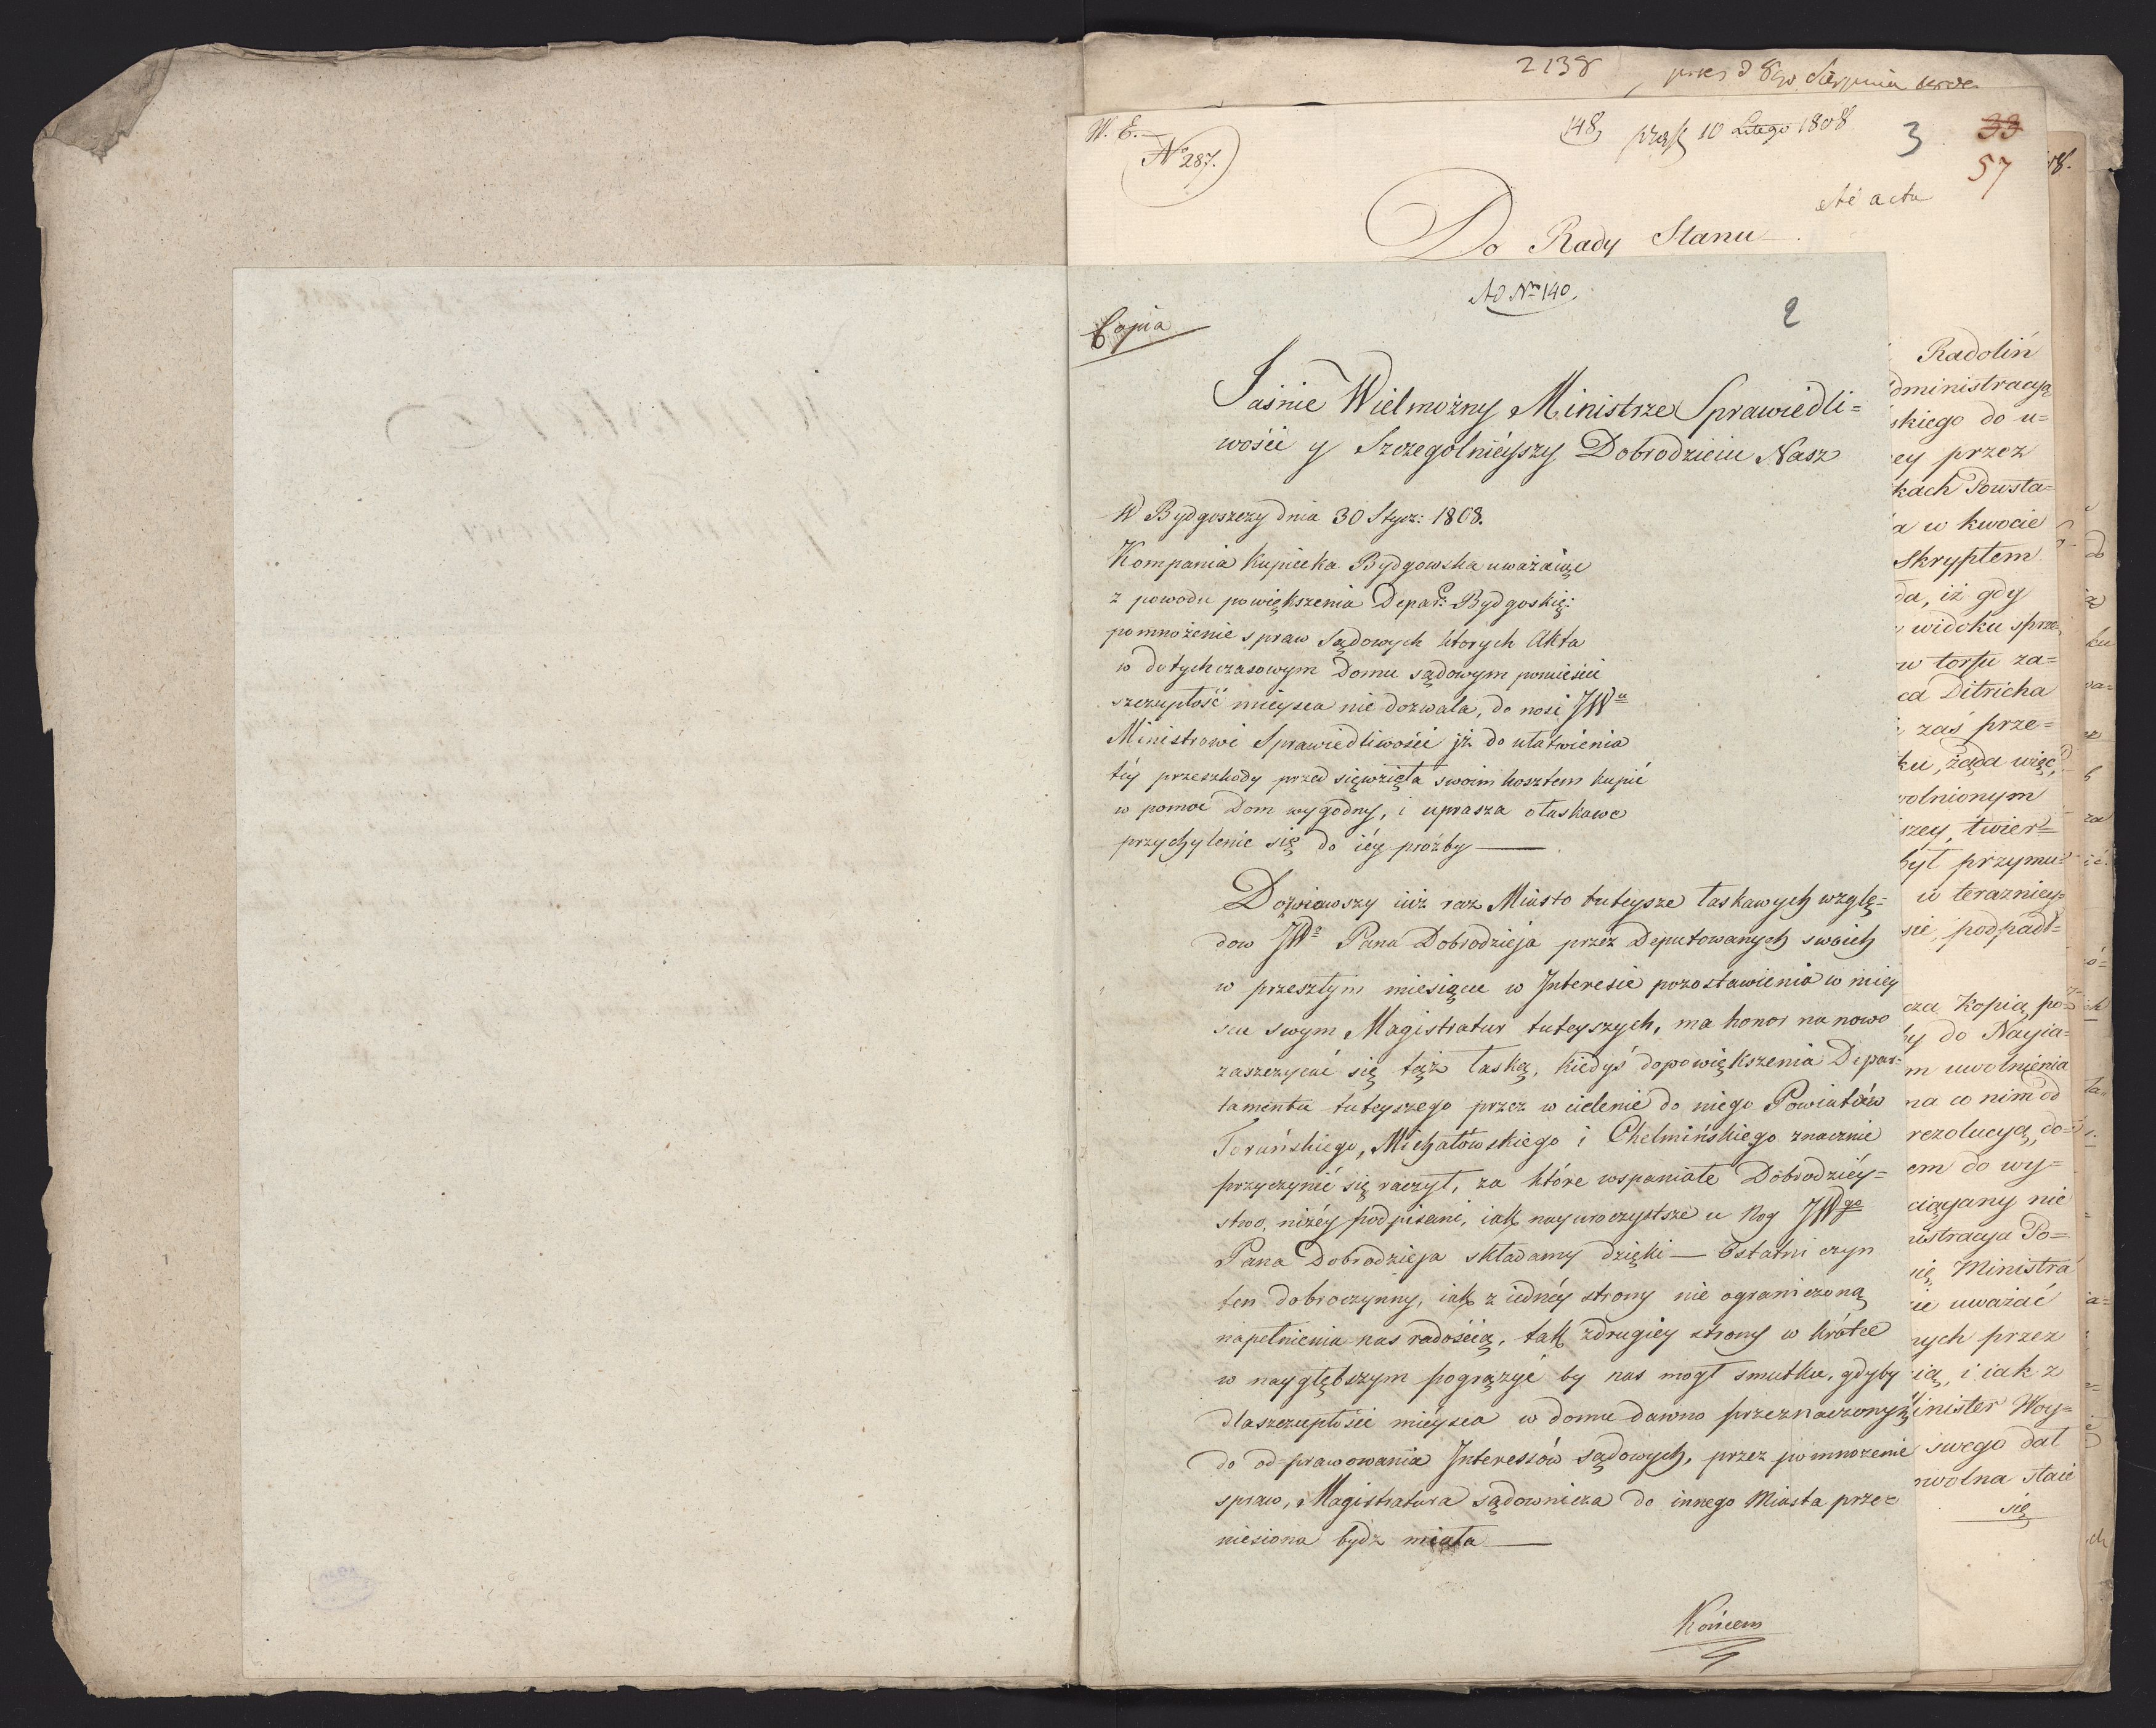 2138 pres d 8go Sierpnia
W. E.
No 287.
148, præs 10 Lutego 1808 3 33
57
Ad acta
Do Rady Stanu
Ad Nro 140.
2
Copia
Jaśnie Wielmożny Ministrze Sprawiedli=
wości y Szczegolnieyszy Dobrodzieiu Nasz
W Bydgoszczy dnia 30 Stycz: 1808.
Kompania Kupiecka Bydgowska uważaiąc
z powodu powiększenia Depar: Bydgoskię:
pomnożenie spraw Sądowych ktorych Akta
w dotychczasowym Domu sądowym pomieścić
szczupłość mieysca nie dozwala, do nosi JWu
Ministrowi Sprawiedliwości iż do ułatwienia
téy przeszkody przed sięwzięła swoim kosztem kupić
w pomoc Dom wygodny, i uprasza o łaskawe
przychylenie się do iéy prożby
Doznawszy iuż raz Miasto tuteysze łaskawych wzglę=
dow JWo Pana Dobrodzieja przez Deputowanych swoich
w przeszłym miesiącu w Interesie pozostawienia w miey
scu swym Magistratur tuteyszych, ma honor na nowo
zaszczycać się tąż łaską, kiedyś do powiększenia Depar=
tamentu tuteyszego przez w cielenie do niego Powiatów
Toruńskiego, Michałówskiego i Chelmińskiego znacznie
przyczynić się raczył, za które wspaniałe Dobrodziéy=
stwo, niżéy podpisani, iak nayuroczystsze u Nog JWgo
Pana Dobrodzieja składamy dzięki — Ostatni czyn
ten dobroczynny, iak z iednéy strony nie ograniczoną
napełnienia nas radością, tak z drugiey strony w krótce
w naygłębszym pogrążyć by nas mogł smutku, gdyby
dla szczupłości miéysca w domu dawno przeznaczonym
do od prawowania Interessów sądowych, przez pomnożenie
spraw, Magistratura sądownicza do innego Miasta prze=
niesiona bydz miała
Końcem
Radolin
dministracyą
skiego do u=
ey przez
kach Powsta=
a w kwocie
Skryptem
da, iż gdy
widoku sprze
w torfu za=
ca Ditricha
zaś prze=
ku, żąda więc,
wolnionym
szey, twier=
był przymu=
w teraźniey=
sie podpadł=
cza Kopią po=
by do Nayia=
m uwolnienia
na co nim od
rezolucyą, do=
em do wy=
ciągany nie
nistracya Po=
się Ministra
ie uważać
nych przez
cią, i iak z
inister Woy=
swego dał
owolna staie
się